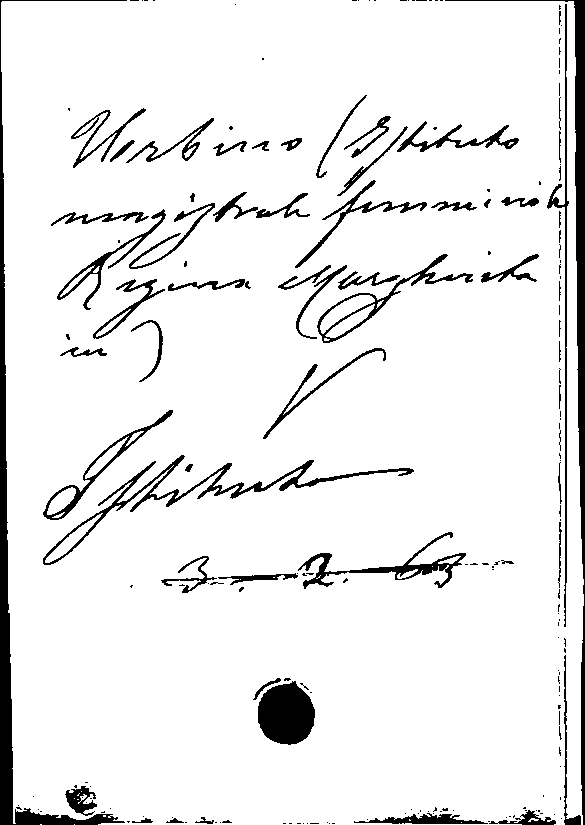 Urbino (Istituto
magistrale femminile
Regina Margherita
in)
V
Istituto
3. 2. 63